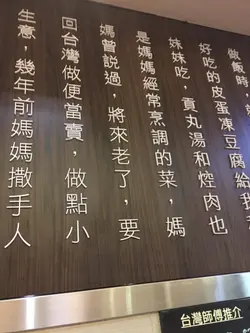 做飯時，
好吃的皮蛋凍豆腐給我
妹妹吃，貢丸湯和焢肉也
是媽媽經常烹調的菜，媽
媽曾說過，將來老了，要
回台灣做便當賣，做點小
生意，幾年前媽媽撒手人
台灣師傅推介